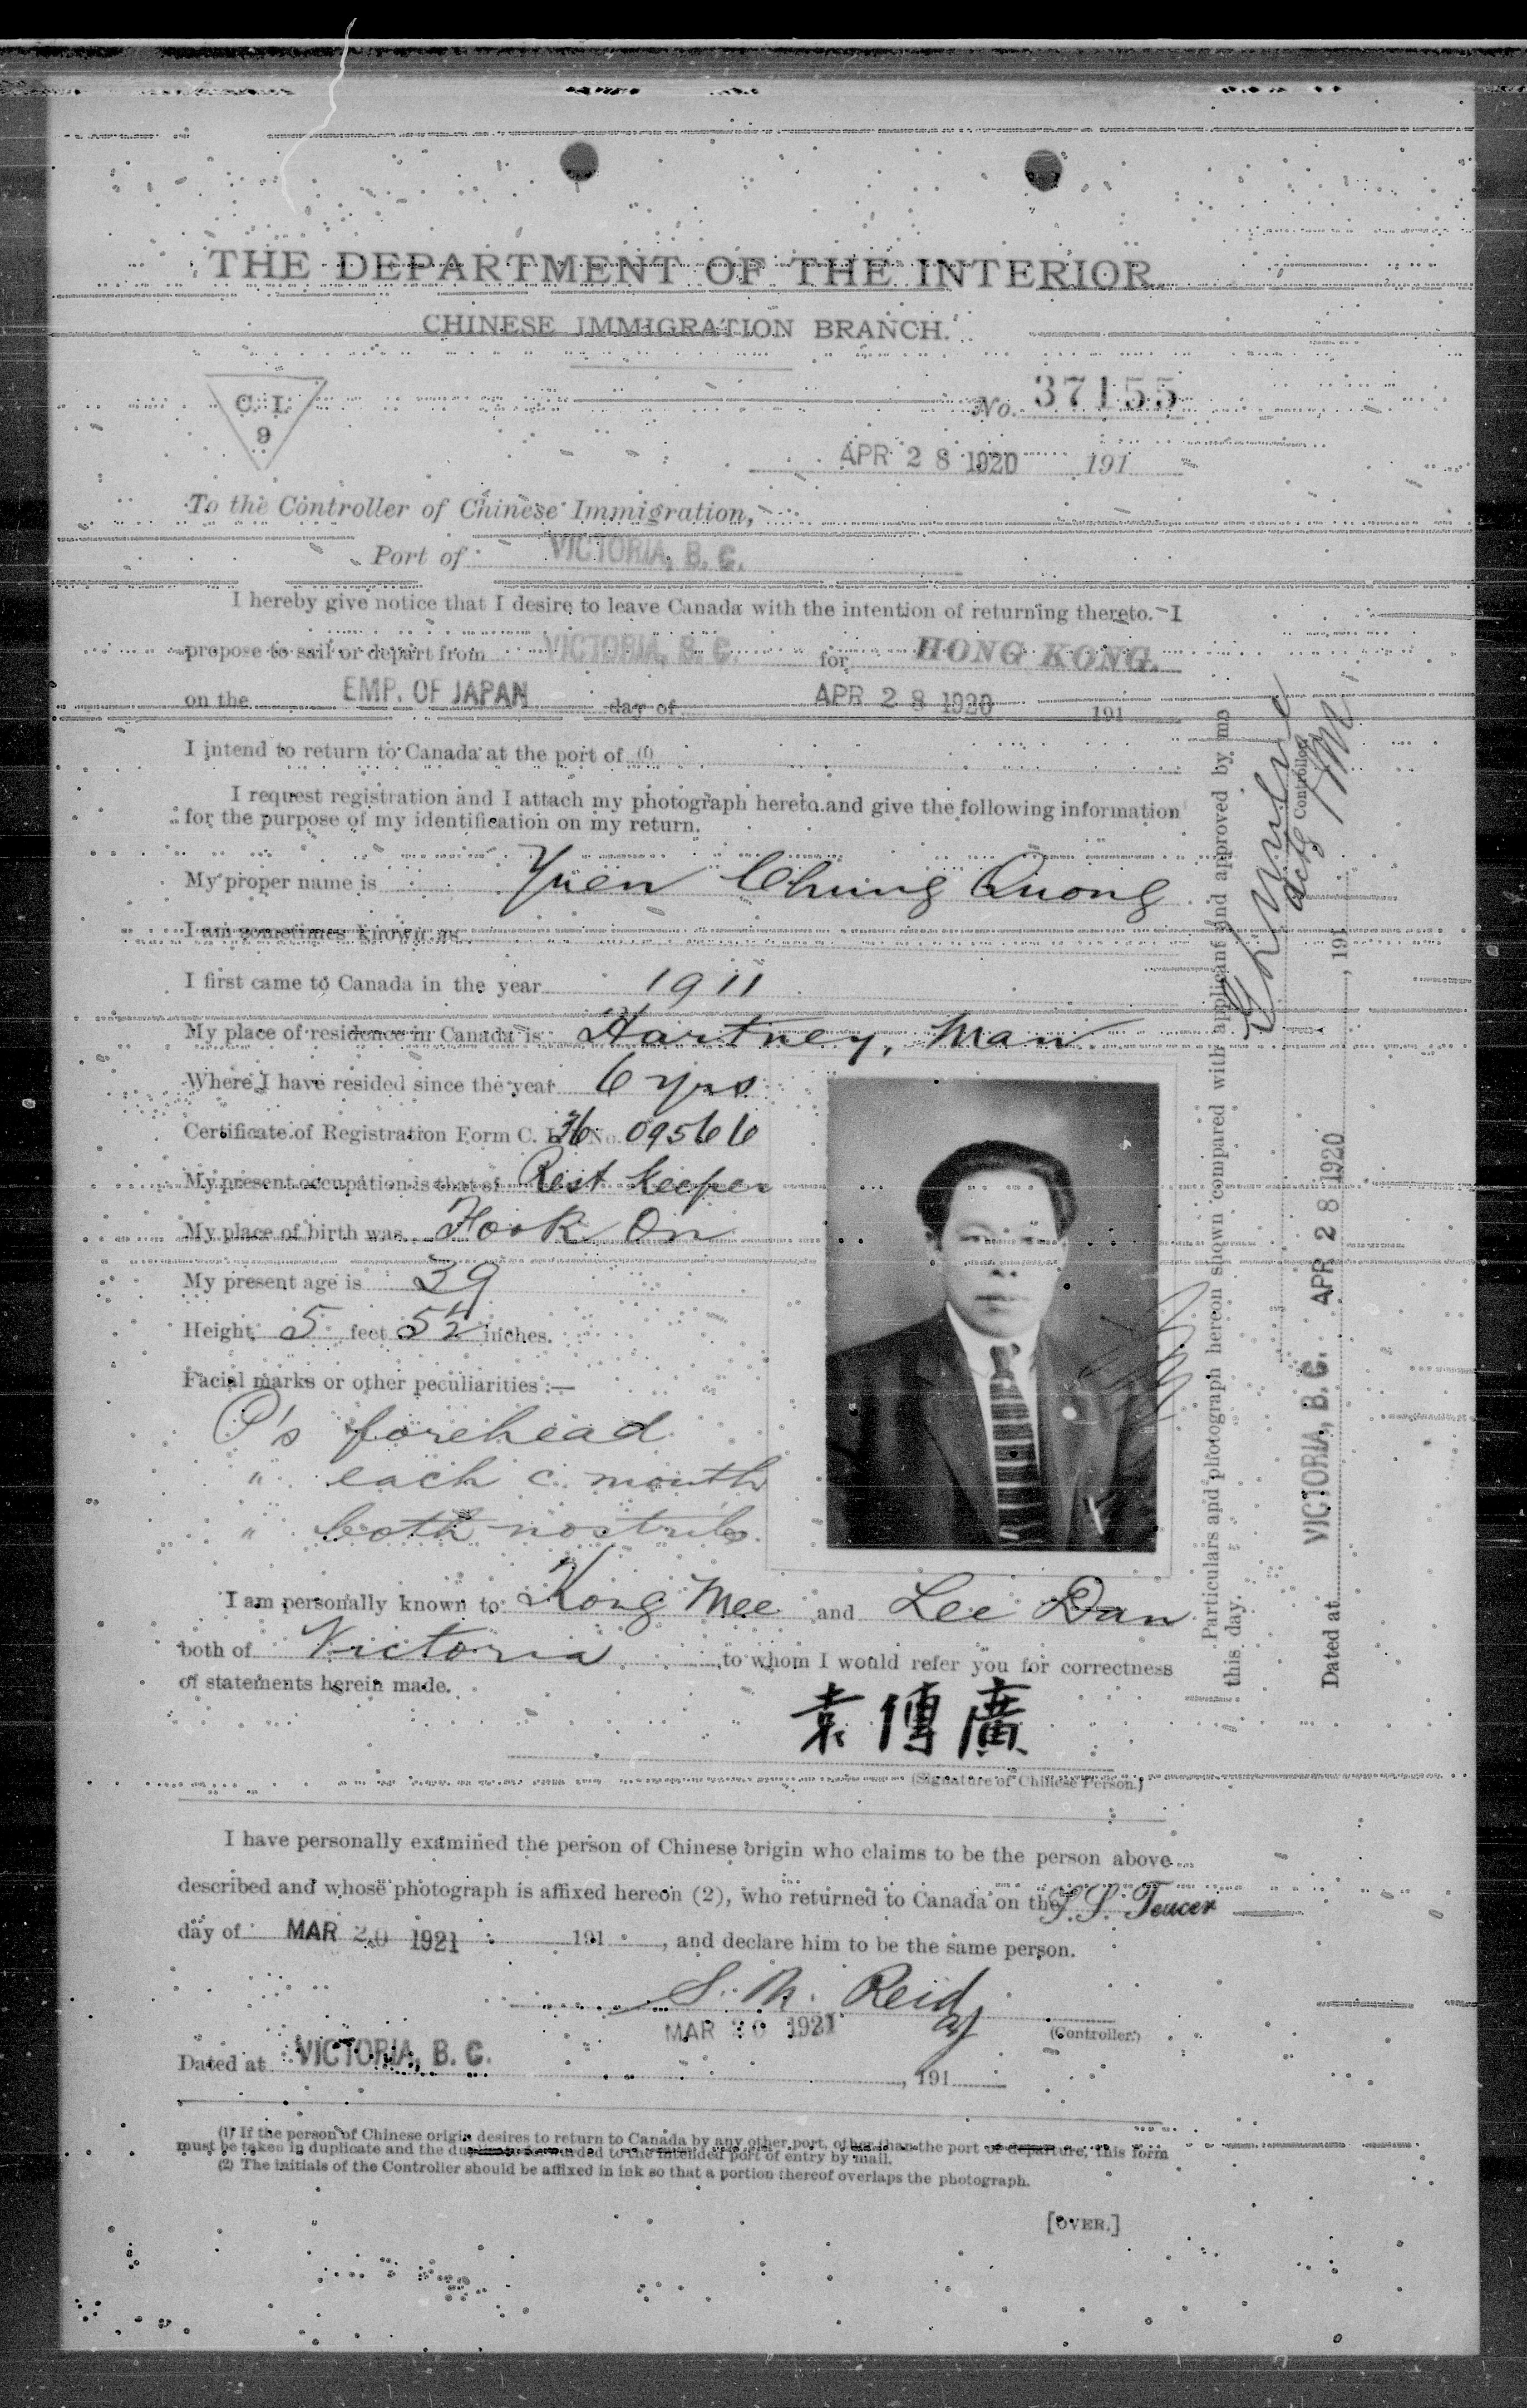 THE DEPARTMENT OF THE INTERIOR.
CHINESE IMMIGRATION BRANCH.
C. I.
9
No. 37155
APR 28 1920 191
To the Controller of Chinese Immigration,
Port of VICTORIA, B. C.
I hereby give notice that I desire to leave Canada with the intention of returning thereto. I
propose to sail or depart from VICTORIA, B. C. for HONG KONG.
on the EMP. OF JAPAN day of APR 28 1920 191
I intend to return to Canada at the port of (1)
I request registration and I attach my photograph hereto and give the following information
for the purpose of my identification on my return.
My proper name is Yuen Chung Quong
I am sometimes known as
I first came to Canada in the year 1911
My place of residence in Canada is Hartney, Man.
Where I have resided since the year 6 yrs
Certificate of Registration Form C. I. 36 No. 09566
My present occupation is that of Rest Keeper
My place of birth was Hook On
My present age is 39
Height 5 feet 5½ inches.
Facial marks or other peculiarities :—
P's forehead
" each c. mouth
" both nostrils.
I am personally known to Kong Mee and Lee Dan
both of Victoria to whom I would refer you for correctness
of statements herein made.
袁傳廣
(Signature of Chinese Person.)
I have personally examined the person of Chinese origin who claims to be the person above
described and whose photograph is affixed hereon (2), who returned to Canada on the S.S. Teucer
day of MAR 20 1921 191 , and declare him to be the same person.
S. N. Reid
MAR 20 1921
(Controller.)
Dated at VICTORIA, B. C. , 191
(1) If the person of Chinese origin desires to return to Canada by any other port, other than the port of departure, this form
must be taken in duplicate and the duplicate forwarded to the intended port of entry by mail.
(2) The initials of the Controller should be affixed in ink so that a portion thereof overlaps the photograph.
[OVER.]
Particulars and photograph hereon shown compared with applicant and approved by me
this day.
Actg Controller
Dated at VICTORIA, B. C. APR 28 1920 , 191